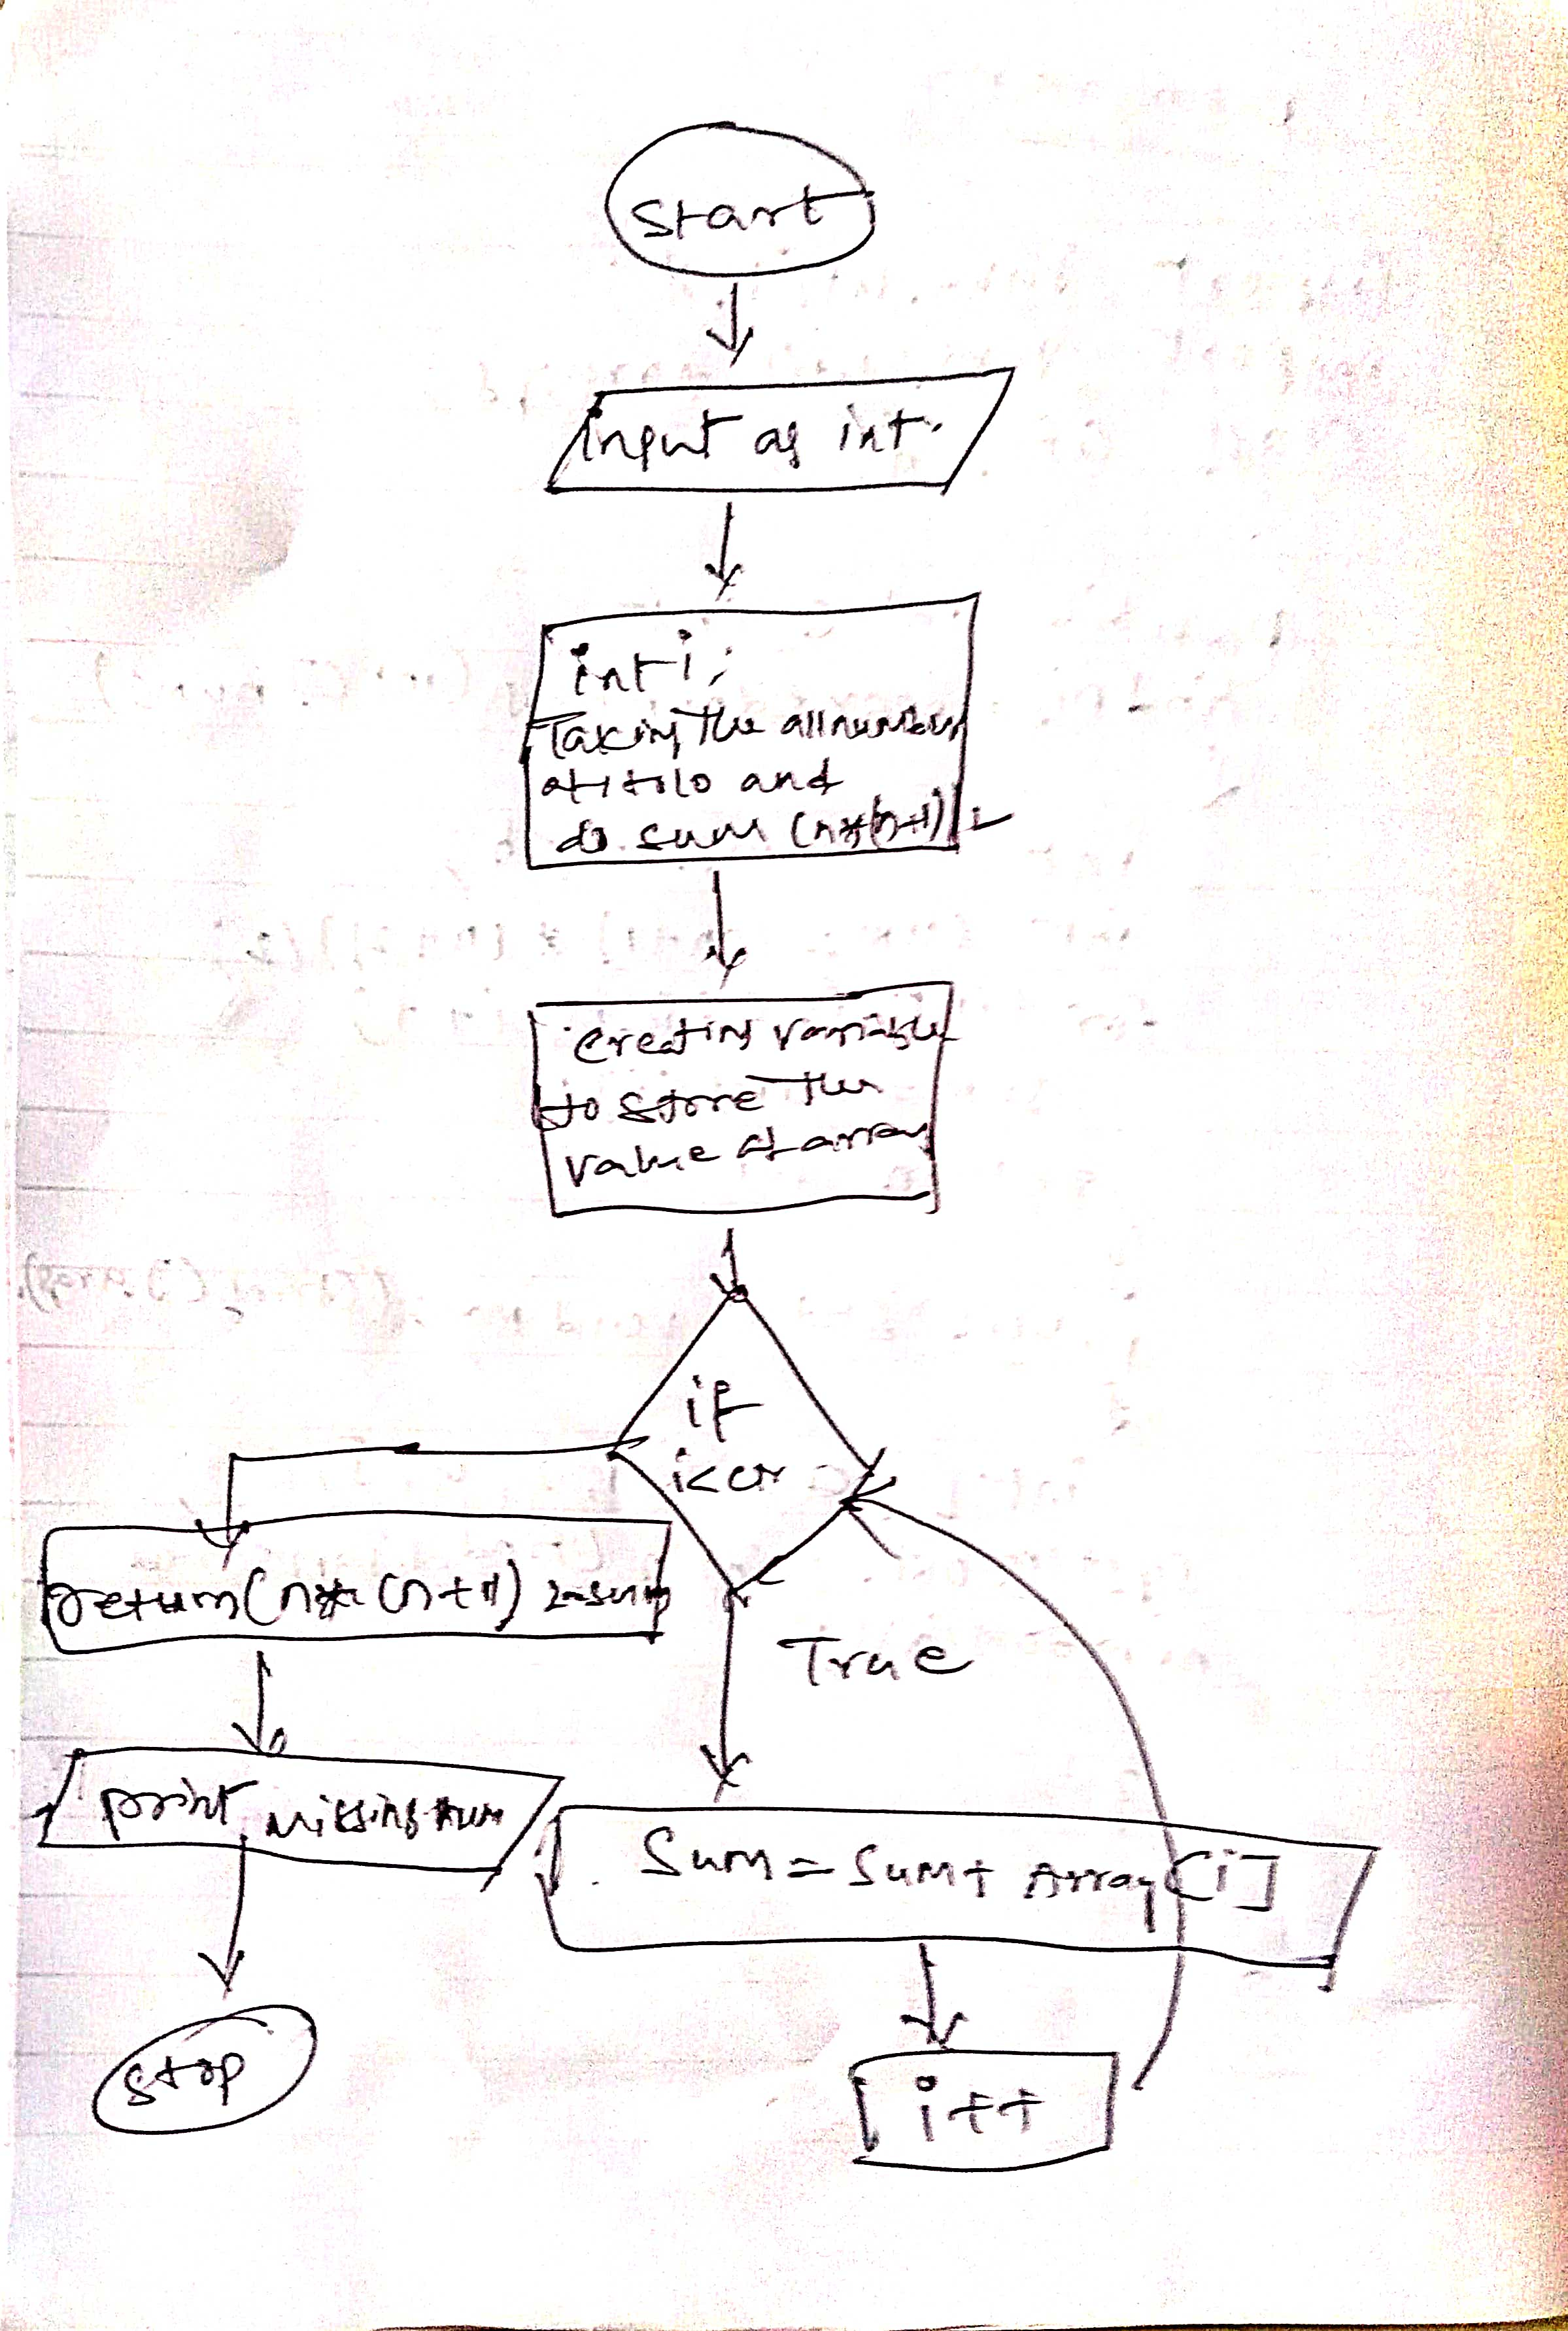 Start
input as int.
int i;
Taking the all numbers
of 1 to 10 and
do sum (n*(n+1)/2
creating variable
to store the
value of array
if
i<
True
return(n*(n+1) 2-sum
print missing num
Sum = Sum + Array[i]
i++
Stop